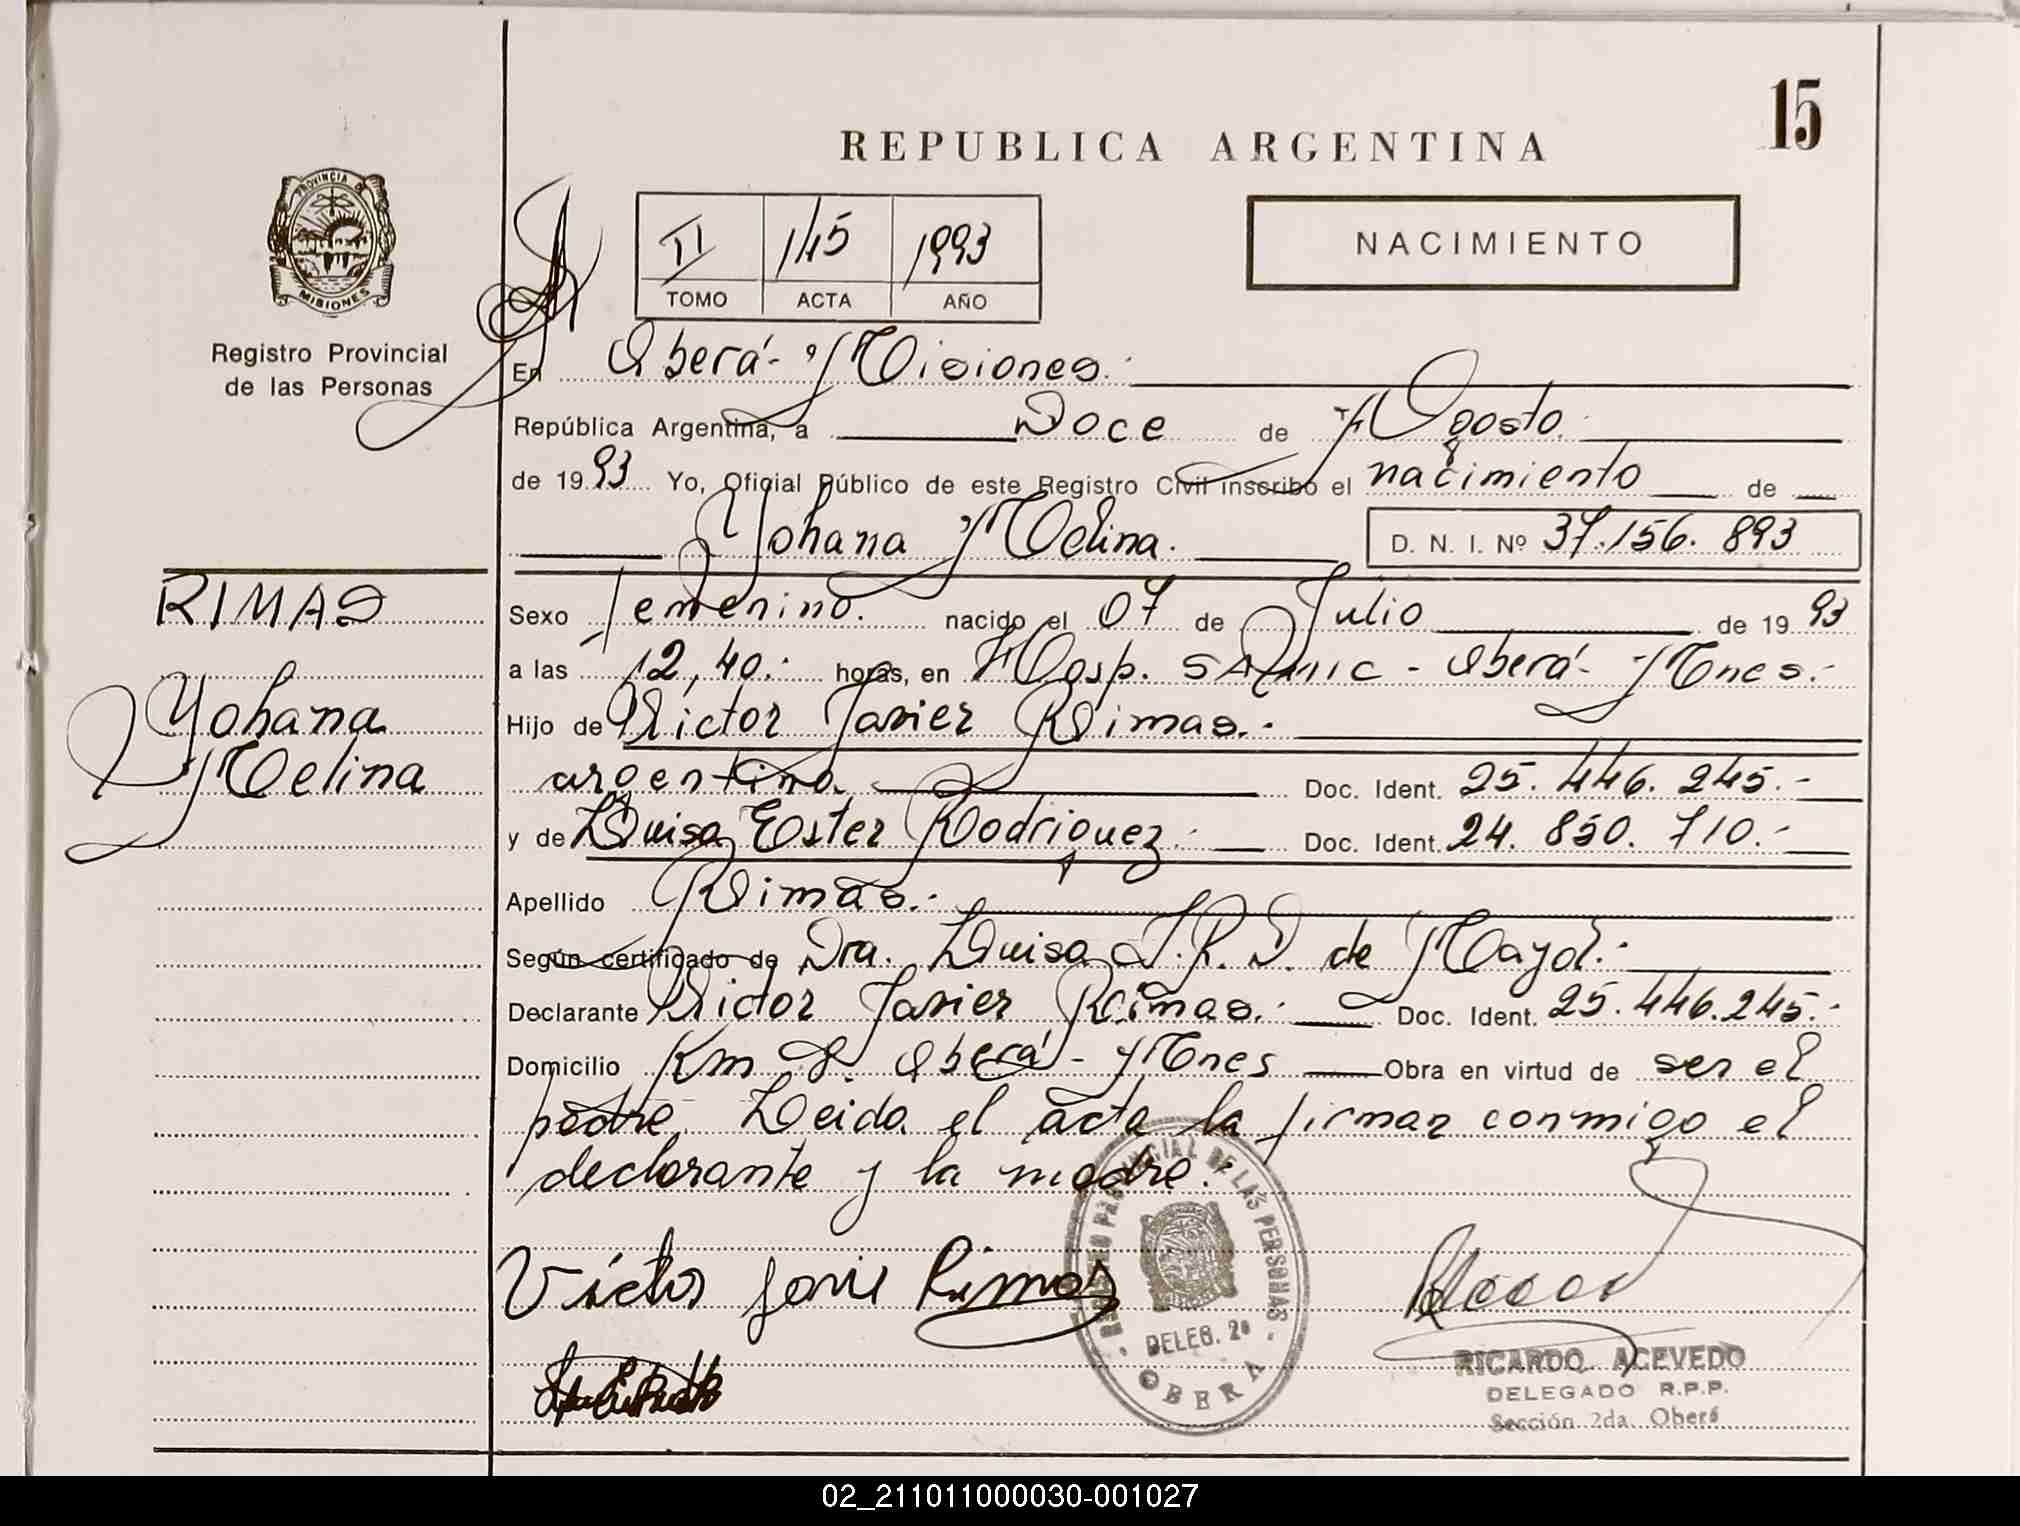 15
REPUBLICA ARGENTINA
PROVINCIA DE
MISIONES
Registro Provincial
de las Personas
II 145 1993
TOMO ACTA AÑO
NACIMIENTO
En Oberá- Misiones.-
República Argentina, a Doce de Agosto.
de 19 93 Yo, Oficial Público de este Registro Civil inscribo el nacimiento de
Yohana Melina. D. N. I. Nº 37.156.893
RIMAS
Sexo Femenino. nacido el 07 de Julio de 19 93
a las 12,40.- horas, en Hosp. SAMIC - Oberá- Mnes.-
Yohana
Melina
Hijo de Victor Javier Rimas.-
argentino. Doc. Ident. 25.446.245.-
y de Luisa Ester Rodriguez.- Doc. Ident. 24.850.710.-
Apellido Rimas.-
Según certificado de Dra. Luisa de Mayol.-
Declarante Victor Javier Rimas.- Doc. Ident. 25.446.245.-
Domicilio Km 8. Oberá- Mnes Obra en virtud de ser el
padre. Leida el acta la firman conmigo el
declarante y la madre.-
Victor Javie Rimas
REGISTRO PROVINCIAL DE LAS PERSONAS
DELEG. 2ª
OBERA
RICARDO ACEVEDO
DELEGADO R.P.P.
Sección 2da Oberá
02_211011000030-001027